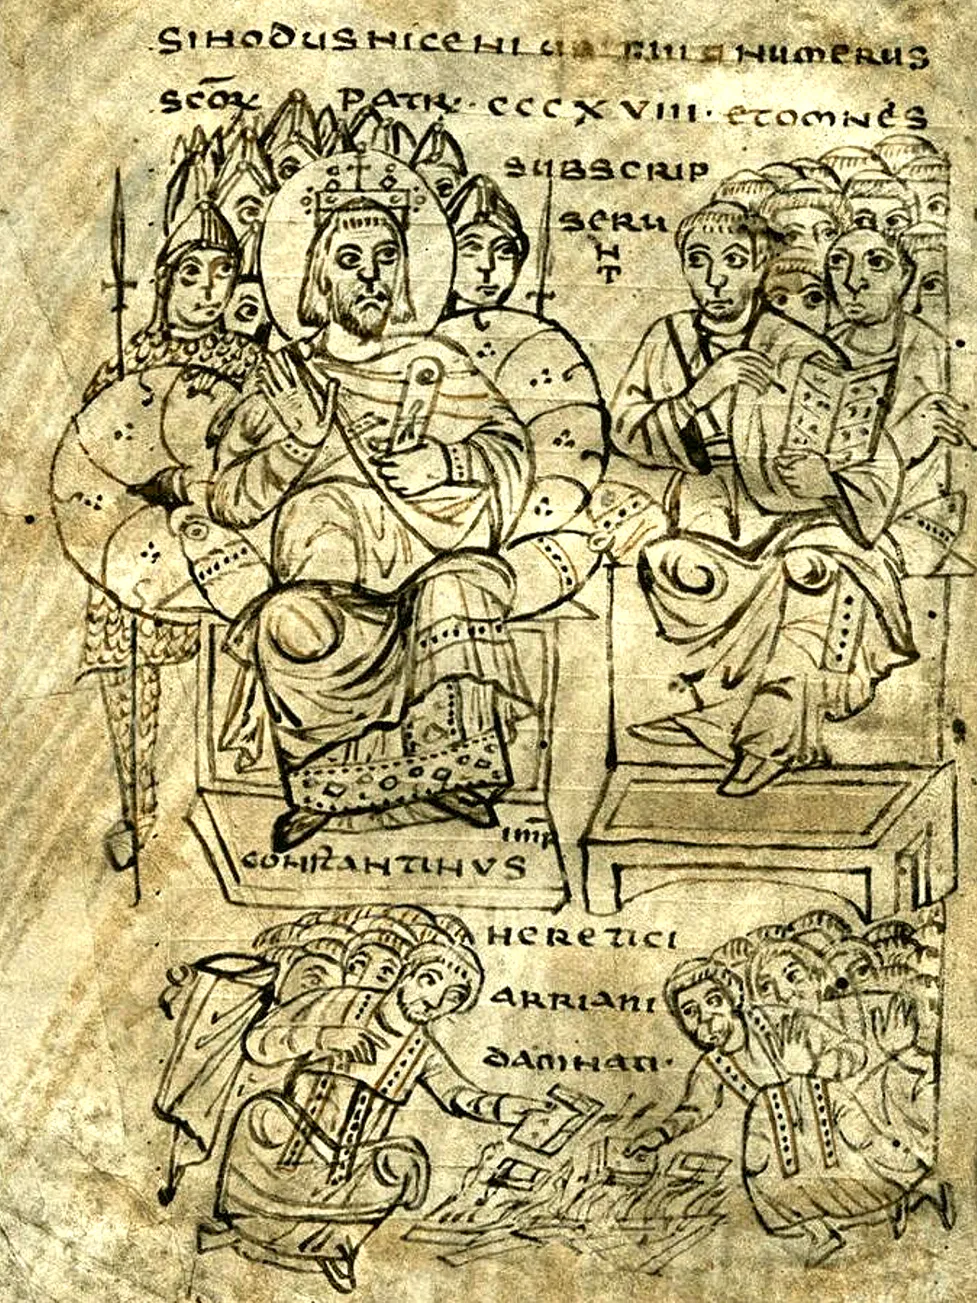 SINODUS NICENI NUMERUS
SC̄ORꝜ PATRꝜ · CCCXVIII · ET OMNES
SUBSCRIP
SERU
N
T
IMP̄
CONSTANTINUS
HERETICI
ARRIANI
DAMNATI ·